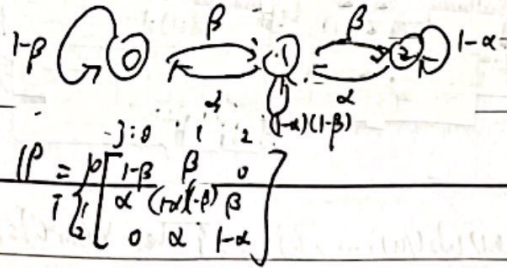 1-β 0 β 1 β 2 1-α
α α
(1-α)(1-β)
j: 0 1 2
P = 0 [ 1-β β 0
i 1 α (1-α)(1-β) β
2 0 α 1-α ]